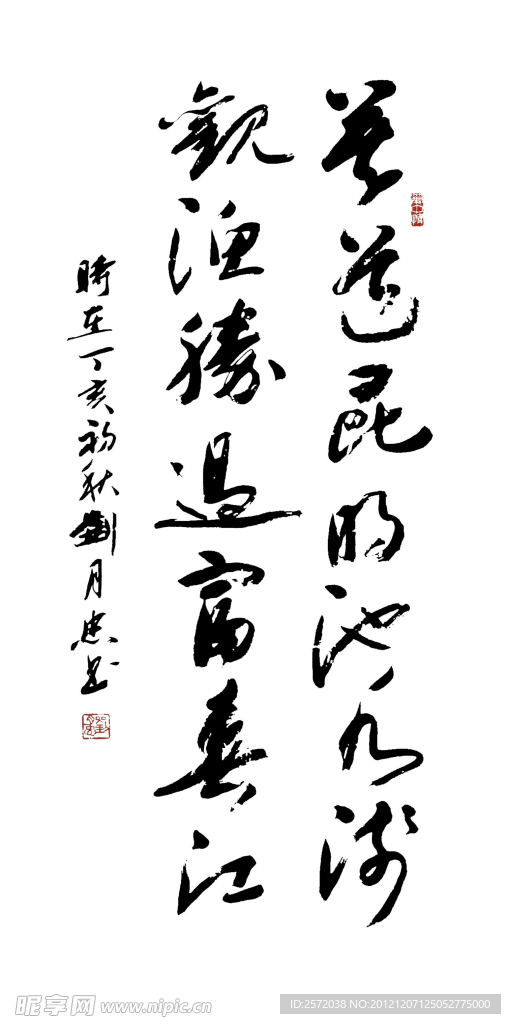 莫道昆明池水淺
觀漁勝過富春江
時在丁亥初秋劉月忠書
昵享网 www.nipic.cn
ID:2572038 NO:20121207125052775000